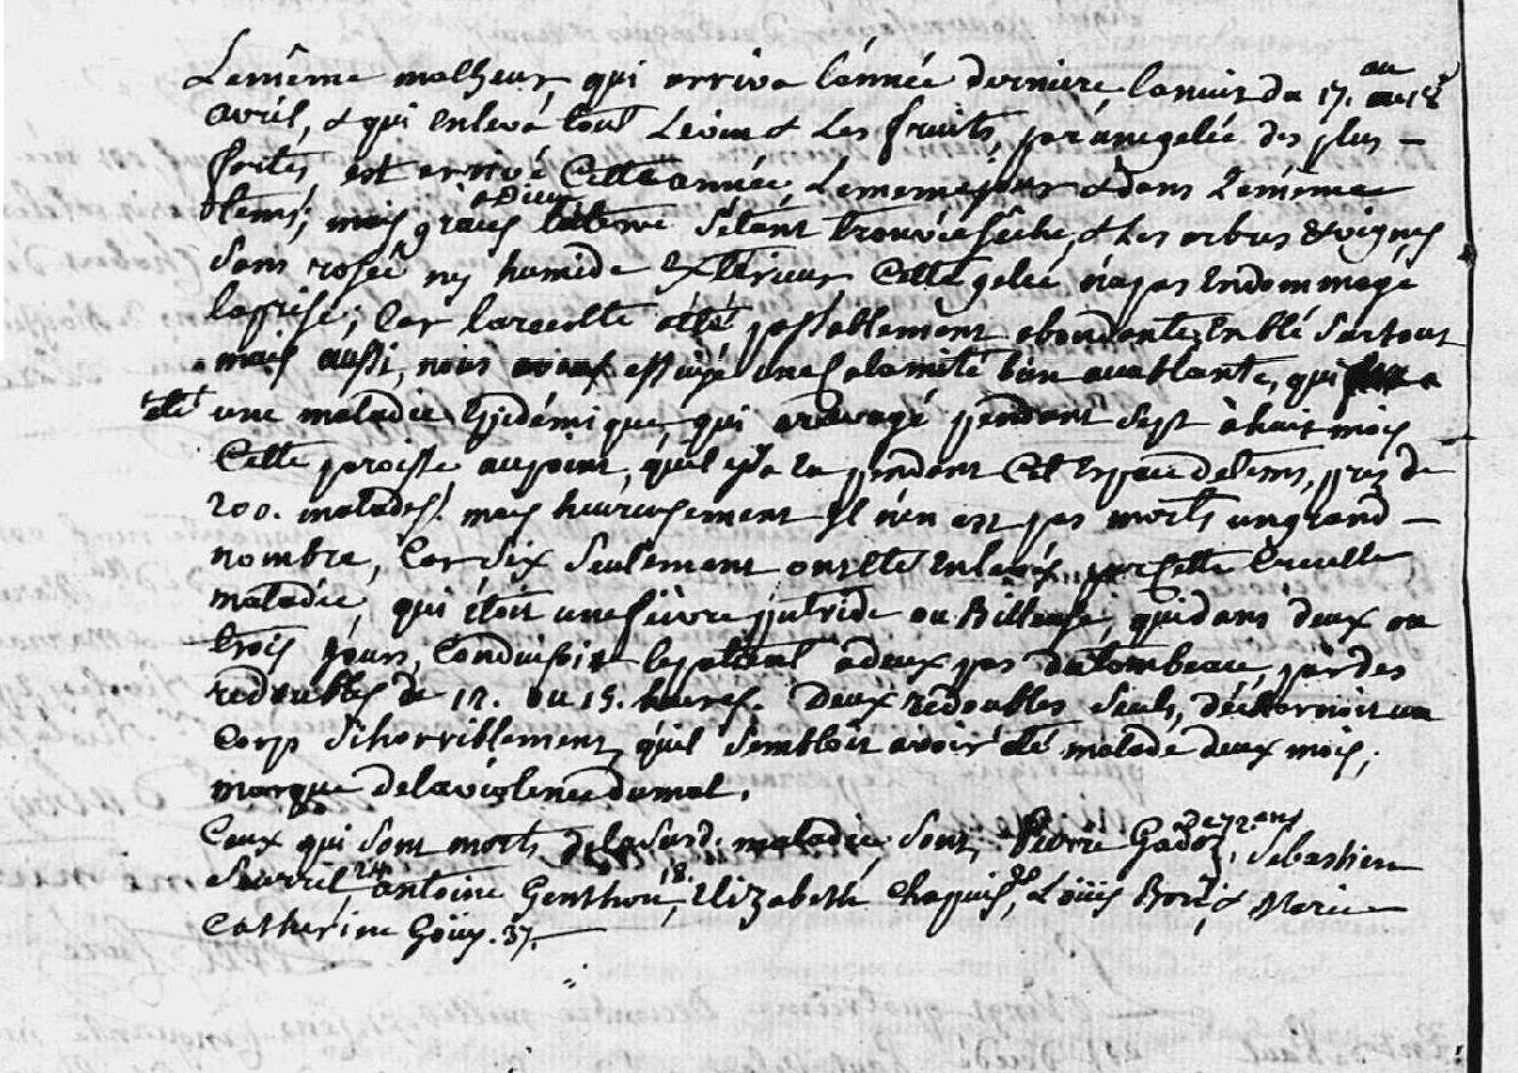 Lemême malheur, qui arriva l'année derniere, lanuit du 17. au 18
avril, & qui enleva tout Levin & Les fruits, par unegelée des plus –
fortes, est arrivé Cette année, Lememe jour & dans Lemême
tems; mais graces à Dieu, s'étant trouvée sêche, & Les arbres & vignes
sans rosée ny humide Exterieur, Cette gelée n'apas Endommagé
; Car larecolte a été passablement abondante, En blé surtout
mais aussi, nous avons essuyé une Calamité bien accablante, qui a
été une maladie Epidémique, qui aravagé pendant sept à huit mois
Cette paroisse, aupoint, qu'il y a eu pendant Cet Espace detems, prez de
200. malades! mais heureusement Il n'en est pas morts ungrand –
nombre, Car six seulement ont été enlevés par Cette Cruelle
maladie, qui étoit unefièvre putride ou Billeuse, quidans deux ou
trois jours, Conduisoit lepatient adeux pas dutombeau, pardes
redoubles de 12. ou 15. heures. Deux redoubles seuls, décharnoit un
Corp si horriblement, qu'il sembloit avoir été malade deux mois;
marque delaviolence dumal.
Ceux qui sont morts delasusd. maladie, sont, Pierre Gadoz de 72. ans, Sebastien
24 antoine Genthon, 18. Elizabeth Chapuis, Loüis & Marie
Catherine Goüy. 37.